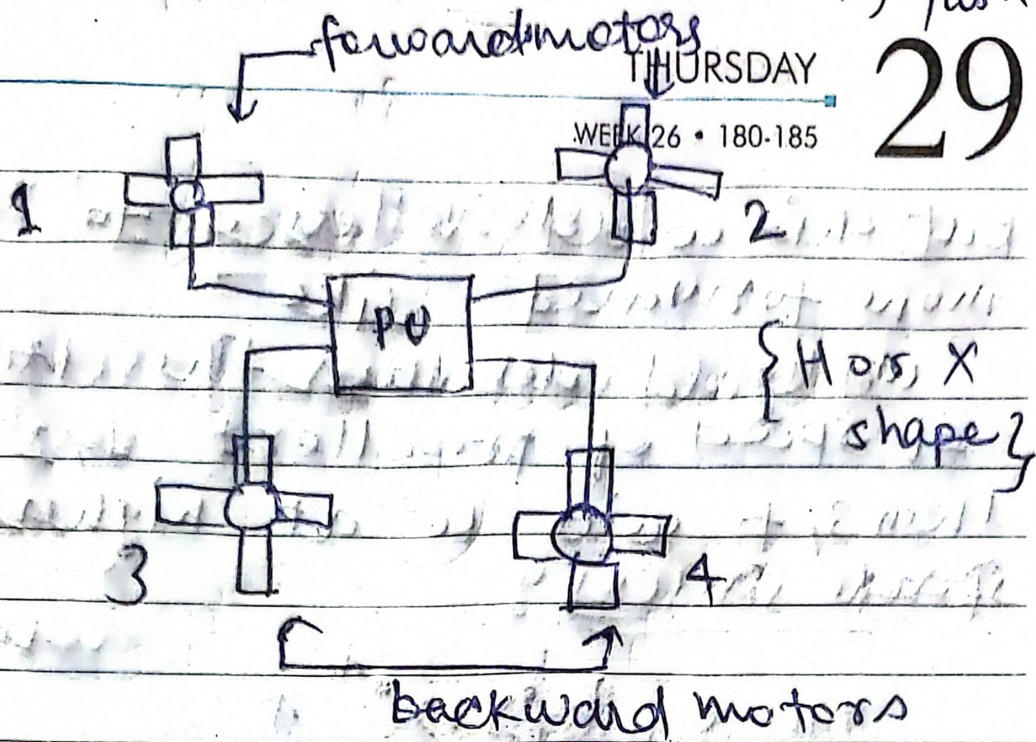 forward motors
THURSDAY
29
WEEK 26 • 180-185
1
2
PU
{ H or, X
shape }
3
4
backward motors